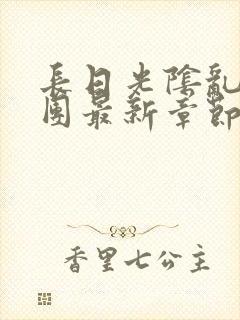 長日光陰亂
團最新章節
香里七公主